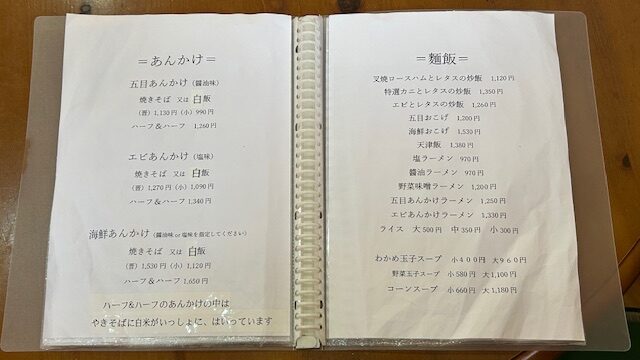 ＝あんかけ＝
五目あんかけ（醤油味）
焼きそば 又は 白飯
（普）1,130円（小）990円
ハーフ＆ハーフ 1,260円
エビあんかけ（塩味）
焼きそば 又は 白飯
（普）1,270円（小）1,090円
ハーフ＆ハーフ 1,340円
海鮮あんかけ（醤油味 or 塩味を指定してください）
焼きそば 又は 白飯
（普）1,530円（小）1,120円
ハーフ＆ハーフ 1,650円
ハーフ&ハーフのあんかけの中は
やきそばに白米がいっしょに、はいっています
＝麺飯＝
叉焼ロースハムとレタスの炒飯 1,120円
特選カニとレタスの炒飯 1,350円
エビとレタスの炒飯 1,260円
五目おこげ 1,200円
海鮮おこげ 1,530円
天津飯 1,380円
塩ラーメン 970円
醤油ラーメン 970円
野菜味噌ラーメン 1,200円
五目あんかけラーメン 1,250円
エビあんかけラーメン 1,330円
ライス 大500円 中350円 小300円
わかめ玉子スープ 小400円 大960円
野菜玉子スープ 小580円 大1,100円
コーンスープ 小660円 大1,180円